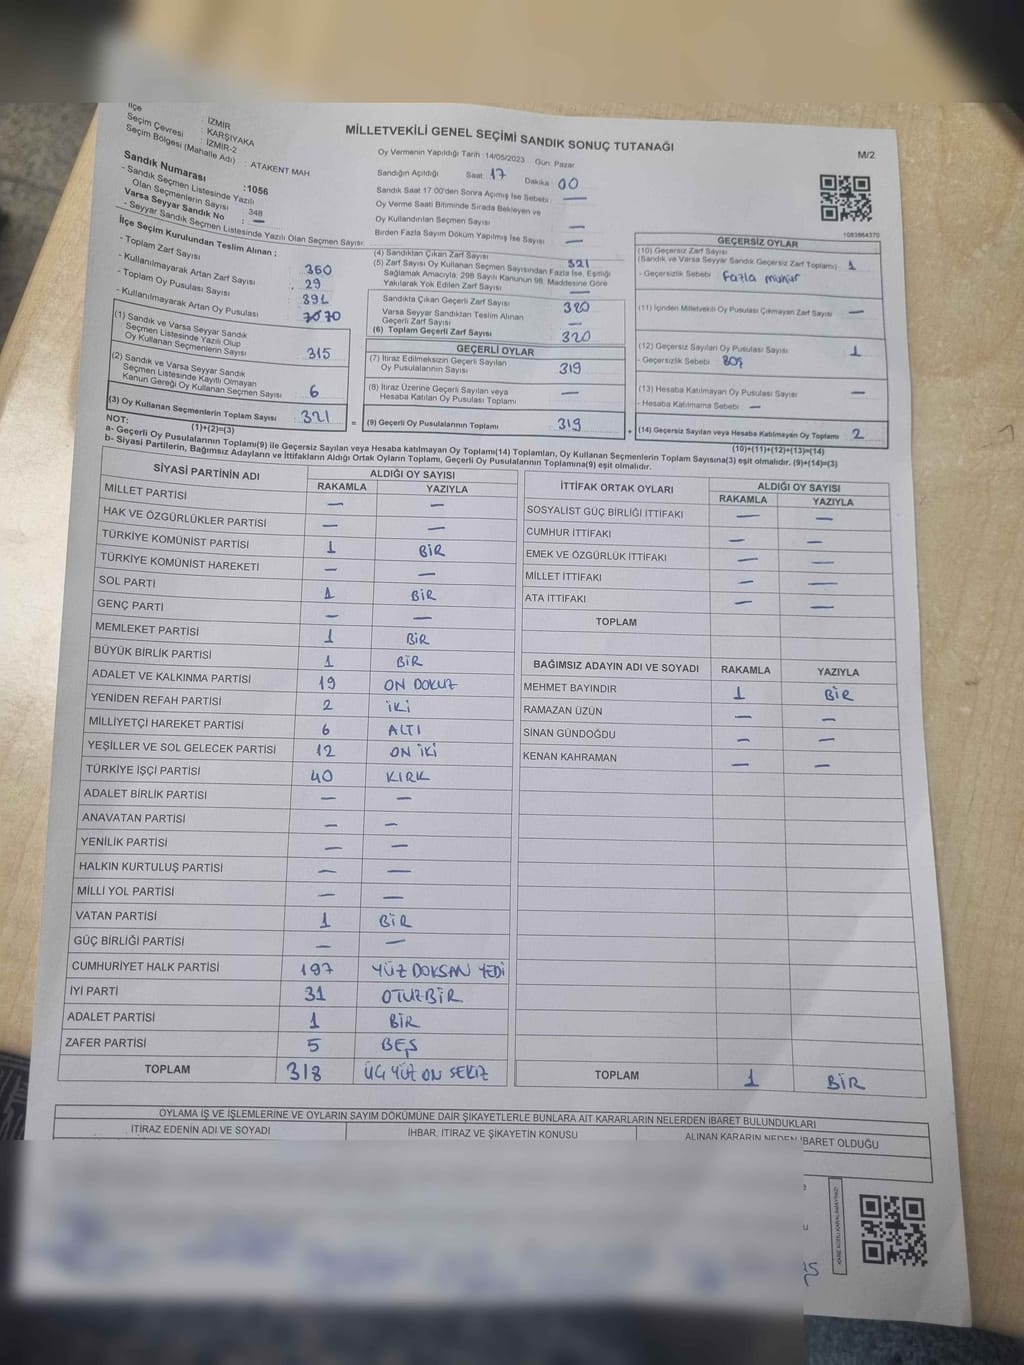 İlçe : İZMİR
Seçim Çevresi : KARŞIYAKA
Seçim Bölgesi (Mahalle Adı) : İZMİR-2
: ATAKENT MAH
MİLLETVEKİLİ GENEL SEÇİMİ SANDIK SONUÇ TUTANAĞI
M/2
Oy Vermenin Yapıldığı Tarih : 14/05/2023 Gün: Pazar
Sandığın Açıldığı Saat : 17 Dakika : 00
Sandık Saat 17:00'den Sonra Açılmış İse Sebebi : —
Oy Verme Saati Bitiminde Sırada Bekleyen ve
Oy Kullandırılan Seçmen Sayısı —
Birden Fazla Sayım Döküm Yapılmış İse Sayısı —
Sandık Numarası : 1056
- Sandık Seçmen Listesinde Yazılı
Olan Seçmenlerin Sayısı : 348
Varsa Seyyar Sandık No : —
- Seyyar Sandık Seçmen Listesinde Yazılı Olan Seçmen Sayısı:
İlçe Seçim Kurulundan Teslim Alınan ;
- Toplam Zarf Sayısı : 350
- Kullanılmayarak Artan Zarf Sayısı : 29
- Toplam Oy Pusulası Sayısı : 391
- Kullanılmayarak Artan Oy Pusulası : 70
(1) Sandık ve Varsa Seyyar Sandık
Seçmen Listesinde Yazılı Olup
Oy Kullanan Seçmenlerin Sayısı : 315
(2) Sandık ve Varsa Seyyar Sandık
Seçmen Listesinde Kayıtlı Olmayan
Kanun Gereği Oy Kullanan Seçmen Sayısı : 6
(3) Oy Kullanan Seçmenlerin Toplam Sayısı : 321
(1)+(2)=(3)
(4) Sandıktan Çıkan Zarf Sayısı 321
(5) Zarf Sayısı Oy Kullanan Seçmen Sayısından Fazla İse, Eşitliği
Sağlamak Amacıyla; 298 Sayılı Kanunun 98. Maddesine Göre
Yakılarak Yok Edilen Zarf Sayısı —
Sandıkta Çıkan Geçerli Zarf Sayısı 320
Varsa Seyyar Sandıktan Teslim Alınan
Geçerli Zarf Sayısı —
(6) Toplam Geçerli Zarf Sayısı 320
GEÇERLİ OYLAR
(7) İtiraz Edilmeksizin Geçerli Sayılan
Oy Pusulalarının Sayısı 319
(8) İtiraz Üzerine Geçerli Sayılan veya
Hesaba Katılan Oy Pusulası Toplamı —
= (9) Geçerli Oy Pusulalarının Toplamı 319 +
1083864370
GEÇERSİZ OYLAR
(10) Geçersiz Zarf Sayısı
(Sandık ve Varsa Seyyar Sandık Geçersiz Zarf Toplamı) 1
- Geçersizlik Sebebi : Fazla mühür
(11) İçinden Milletvekili Oy Pusulası Çıkmayan Zarf Sayısı —
(12) Geçersiz Sayılan Oy Pusulası Sayısı 1
- Geçersizlik Sebebi : BOŞ
(13) Hesaba Katılmayan Oy Pusulası Sayısı —
- Hesaba Katılmama Sebebi : —
(14) Geçersiz Sayılan veya Hesaba Katılmayan Oy Toplamı 2
(10)+(11)+(12)+(13)=(14)
NOT:
a- Geçerli Oy Pusulalarının Toplamı(9) ile Geçersiz Sayılan veya Hesaba katılmayan Oy Toplamı(14) Toplamları, Oy Kullanan Seçmenlerin Toplam Sayısına(3) eşit olmalıdır. (9)+(14)=(3)
b- Siyasi Partilerin, Bağımsız Adayların ve İttifakların Aldığı Ortak Oyların Toplamı, Geçerli Oy Pusulalarının Toplamına(9) eşit olmalıdır.
SİYASİ PARTİNİN ADI ALDIĞI OY SAYISI
RAKAMLA YAZIYLA
MİLLET PARTİSİ — —
HAK VE ÖZGÜRLÜKLER PARTİSİ — —
TÜRKİYE KOMÜNİST PARTİSİ 1 BİR
TÜRKİYE KOMÜNİST HAREKETİ — —
SOL PARTİ 1 BİR
GENÇ PARTİ — —
MEMLEKET PARTİSİ 1 BİR
BÜYÜK BİRLİK PARTİSİ 1 BİR
ADALET VE KALKINMA PARTİSİ 19 ON DOKUZ
YENİDEN REFAH PARTİSİ 2 İKİ
MİLLİYETÇİ HAREKET PARTİSİ 6 ALTI
YEŞİLLER VE SOL GELECEK PARTİSİ 12 ON İKİ
TÜRKİYE İŞÇİ PARTİSİ 40 KIRK
ADALET BİRLİK PARTİSİ — —
ANAVATAN PARTİSİ — —
YENİLİK PARTİSİ — —
HALKIN KURTULUŞ PARTİSİ — —
MİLLİ YOL PARTİSİ — —
VATAN PARTİSİ 1 BİR
GÜÇ BİRLİĞİ PARTİSİ — —
CUMHURİYET HALK PARTİSİ 197 YÜZ DOKSAN YEDİ
İYİ PARTİ 31 OTUZBİR
ADALET PARTİSİ 1 BİR
ZAFER PARTİSİ 5 BEŞ
TOPLAM 318 ÜÇ YÜZ ON SEKİZ
İTTİFAK ORTAK OYLARI ALDIĞI OY SAYISI
RAKAMLA YAZIYLA
SOSYALİST GÜÇ BİRLİĞİ İTTİFAKI — —
CUMHUR İTTİFAKI — —
EMEK VE ÖZGÜRLÜK İTTİFAKI — —
MİLLET İTTİFAKI — —
ATA İTTİFAKI — —
TOPLAM
BAĞIMSIZ ADAYIN ADI VE SOYADI RAKAMLA YAZIYLA
MEHMET BAYINDIR 1 BİR
RAMAZAN ÜZÜN — —
SİNAN GÜNDOĞDU — —
KENAN KAHRAMAN — —
TOPLAM 1 BİR
OYLAMA İŞ VE İŞLEMLERİNE VE OYLARIN SAYIM DÖKÜMÜNE DAİR ŞİKAYETLERLE BUNLARA AİT KARARLARIN NELERDEN İBARET BULUNDUKLARI
İTİRAZ EDENİN ADI VE SOYADI İHBAR, İTİRAZ VE ŞİKAYETİN KONUSU ALINAN KARARIN NEDEN İBARET OLDUĞU
KARE KODU KARALAMAYINIZ!